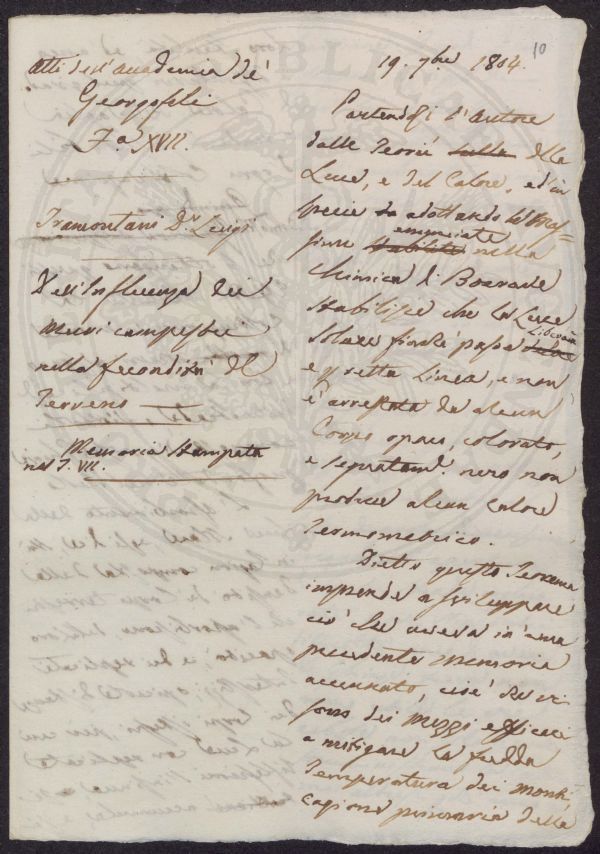 Atti dell'Accademia de'
Georgofili
F.a XVII.
Tramontani Dr. Luigi
Dell'Influenza dei
Muri campestri
nella fecondità del
Terreno
Memoria stampata
nel T. VII.
10
19. 7bre 1804.
Partendosi l'Autore
dalle Teorie della
Luce, e del Calore, ed in
specie adottando le Mas=
sime enunciate nella
Chimica di
stabilisce che la Luce
Solare finché passa Liberam.
e p retta Linea, e non
è arrestata da alcun
Corpo opaco, colorato,
e segnatam. nero non
produce alcun Calore
Termometrico.
Dietro questo Teorema
imprende a sviluppare
ciò che aveva in altra
precedente Memoria
accennato, cioè che vi
sono dei mezzi efficaci
a mitigare la fredda
Temperatura dei monti,
cagione primaria della